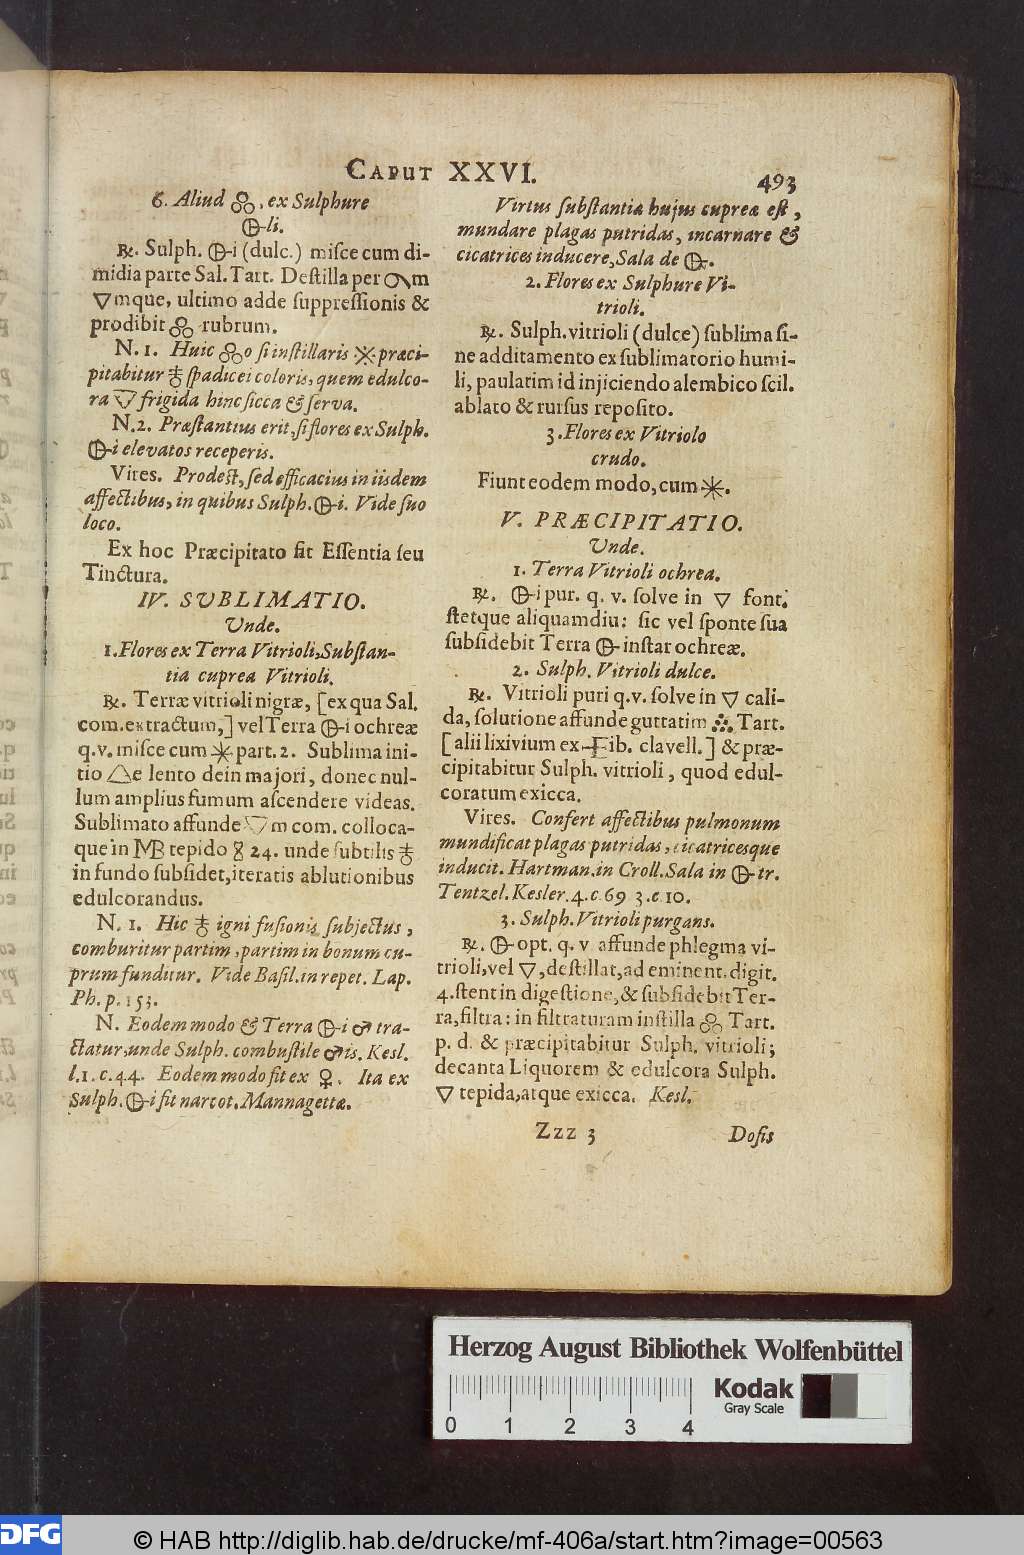 CAPUT XXVI.
493
6. Aliud ꝏ, ex Sulphure
🜖-li.
℞. Sulph. 🜖-i (dulc.) miſce cum di-
midia parte Sal. Tart. Deſtilla per m
▽mque, ultimo adde ſuppreſſionis &
prodibit rubrum.
N. 1. Huic o ſi inſtillaris præci-
pitabitur ſpadicei coloris, quem edulco-
ra frigida hinc ſicca & ſerva.
N. 2. Præſtantius erit, ſi flores ex Sulph.
🜖-i elevatos receperis.
Vires. Prodeſt, ſed efficacius in iisdem
affectibus, in quibus Sulph. 🜖-i. Vide ſuo
loco.
Ex hoc Præcipitato fit Eſſentia ſeu
Tinctura.
IV. SUBLIMATIO.
Unde.
1. Flores ex Terra Vitrioli, Subſtan-
tia cuprea Vitrioli.
℞. Terræ vitrioli nigræ, [ex qua Sal.
com. extractum,] vel Terra 🜖-i ochreæ
q. v. miſce cum ✳ part. 2. Sublima ini-
tio △e lento dein majori, donec nul-
lum amplius fumum aſcendere videas.
Sublimato affunde m com. colloca-
que in MB tepido 24. unde ſubtilis
in fundo ſubſidet, iteratis ablutionibus
edulcorandus.
N. 1. Hic igni fuſionis ſubjectus,
comburitur partim, partim in bonum cu-
prum funditur. Vide Baſil. in repet. Lap.
Ph. p. 153.
N. Eodem modo & Terra 🜖-i ♂ tra-
ctatur, unde Sulph. combuſtile ♂is. Kesl.
l. 1. c. 44. Eodem modo fit ex ♀. Ita ex
Sulph. 🜖-i fit narcot. Mannagettæ.
Virtus ſubſtantiæ hujus cupreæ eſt,
mundare plagas putridas, incarnare &
cicatrices inducere, Sala de 🜖-.
2. Flores ex Sulphure Vi-
trioli.
℞. Sulph. vitrioli (dulce) ſublima ſi-
ne additamento ex ſublimatorio humi-
li, paulatim id injiciendo alembico ſcil.
ablato & rurſus repoſito.
3. Flores ex Vitriolo
crudo.
Fiunt eodem modo, cum ✳.
V. PRÆCIPITATIO.
Unde.
1. Terra Vitrioli ochrea.
℞. 🜖-i pur. q. v. ſolve in ▽ font.
ſtetque aliquamdiu: ſic vel ſponte ſua
ſubſidebit Terra 🜖- inſtar ochreæ.
2. Sulph. Vitrioli dulce.
℞. Vitrioli puri q. v. ſolve in ▽ cali-
da, ſolutione affunde guttatim Tart.
[alii lixivium ex ib. clavell.] & præ-
cipitabitur Sulph. vitrioli, quod edul-
coratum exicca.
Vires. Confert affectibus pulmonum
mundificat plagas putridas, cicatricesque
inducit. Hartman. in Croll. Sala in 🜖-tr.
Tentzel. Kesler. 4. c. 69 3. c 10.
3. Sulph. Vitrioli purgans.
℞. 🜖- opt. q. v affunde phlegma vi-
trioli, vel ▽, deſtillat, ad eminent. digit.
4. ſtent in digeſtione, & ſubſidebit Ter-
ra, filtra: in filtraturam inſtilla Tart.
p. d. & præcipitabitur Sulph. vitrioli;
decanta Liquorem & edulcora Sulph.
▽ tepida, atque exicca. Kesl.
Zzz 3
Doſis
Herzog August Bibliothek Wolfenbüttel
Kodak
Gray Scale
0 1 2 3 4
DFG
© HAB http://diglib.hab.de/drucke/mf-406a/start.htm?image=00563